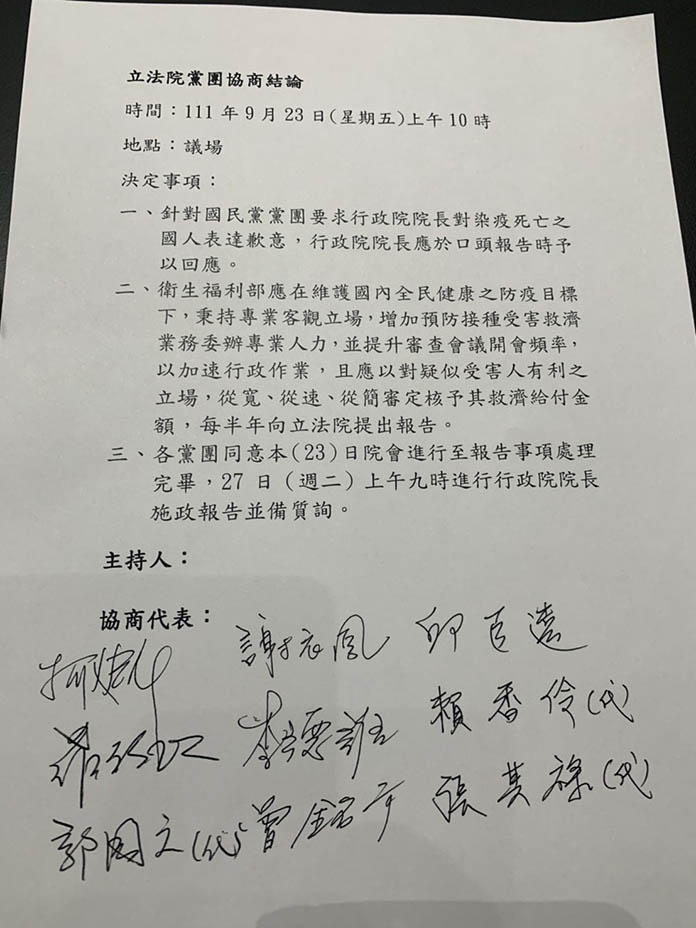 立法院黨團協商結論
時間：111 年 9 月 23 日(星期五)上午 10 時
地點：議場
決定事項：
一、針對國民黨黨團要求行政院院長對染疫死亡之
國人表達歉意，行政院院長應於口頭報告時予
以回應。
二、衛生福利部應在維護國內全民健康之防疫目標
下，秉持專業客觀立場，增加預防接種受害救濟
業務委辦專業人力，並提升審查會議開會頻率，
以加速行政作業，且應以對疑似受害人有利之
立場，從寬、從速、從簡審定核予其救濟給付金
額，每半年向立法院提出報告。
三、各黨團同意本(23)日院會進行至報告事項處理
完畢，27 日（週二）上午九時進行行政院院長
施政報告並備質詢。
主持人：
協商代表：
謝衣鳳 邱臣遠
賴香伶(代)
郭國文(代) 曾銘宗 張其祿(代)